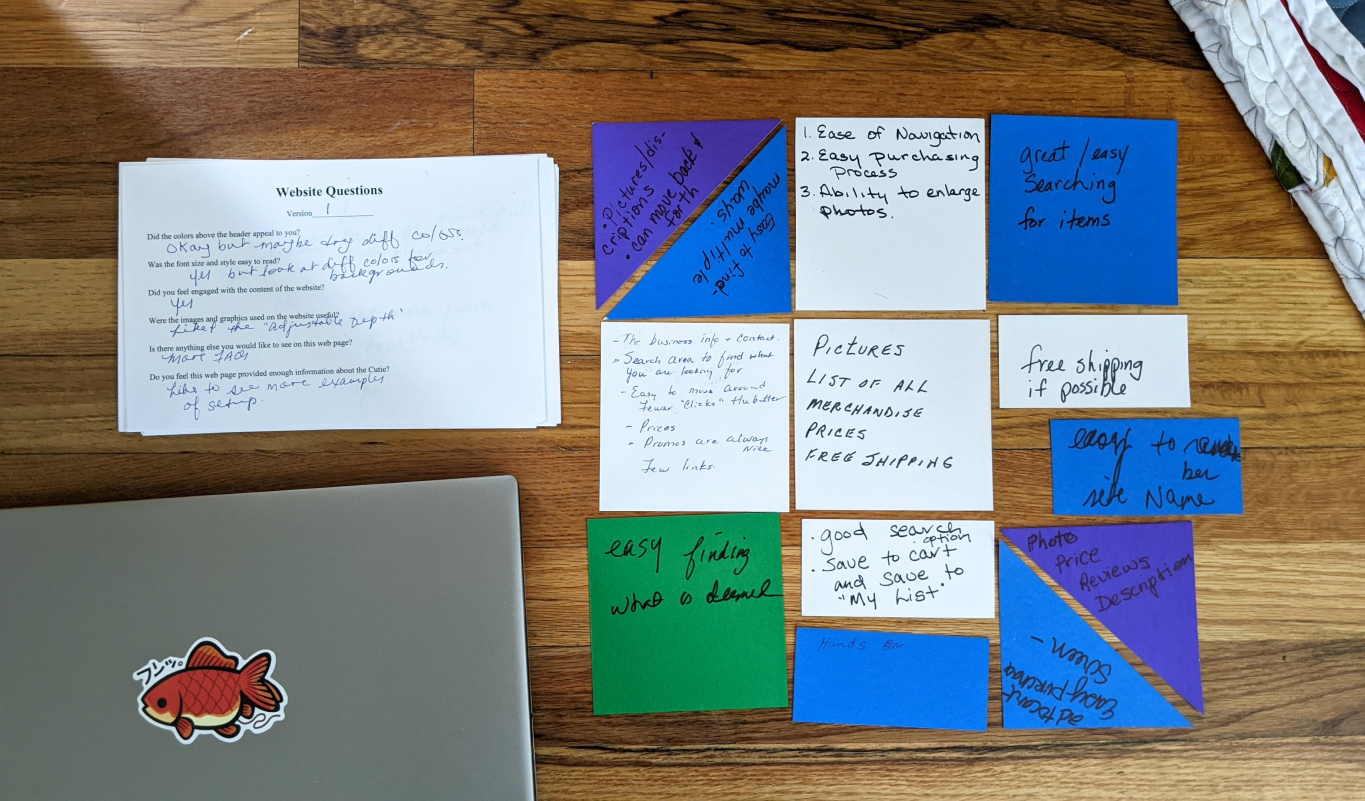 Website Questions
Version 1
Did the colors above the header appeal to you?
Okay but maybe try diff colors.
Was the font size and style easy to read?
yes but look at diff colors for
backgrounds.
Did you feel engaged with the content of the website?
Yes
Were the images and graphics used on the website useful?
Liked the "Adjustable Depth"
Is there anything else you would like to see on this web page?
More FAQs
Do you feel this web page provided enough information about the Cutie?
Like to see more examples
of setup.
フンッ。
• Pictures/dis-
criptions
• can move back &
forth
Easy to find-
maybe multiple
ways
1. Ease of Navigation
2. Easy Purchasing
Process
3. Ability to enlarge
Photos.
great / easy
Searching
for items
- The business info + contact.
- Search area to find what
you are looking for
- Easy to move around
Fewer "Clicks" the better
- Prices
- Promos are always
Nice
Few links.
PICTURES
LIST OF ALL
MERCHANDISE
PRICES
FREE SHIPPING
free shipping
if possible
easy to
ber
site Name
easy finding
what is
• good search
option
• Save to cart
and save to
"My List"
Hands on
Photo
Price
Reviews
Description
add to cart
Easy purchase
Screen -